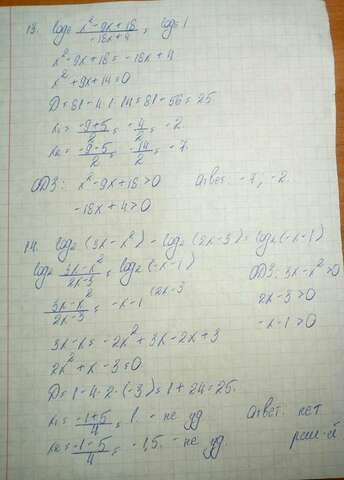 13. log₆ (x²-9x+18)/(-18x+4) = log₆ 1
x²-9x+18 = -18x+4
x²+9x+14=0
D=81-4·1·14=81-56=25
x₁= (-9+5)/2 = -4/2 = -2
x₂= (-9-5)/2 = -14/2 = -7.
ОДЗ: x²-9x+18>0 Ответ. -7, -2.
-18x+4>0
14. log₂ (3x-x²) - log₂ (2x-3) = log₂(-x-1)
log₂ (3x-x²)/(2x-3) = log₂(-x-1) ОДЗ: 3x-x²>0
(3x-x²)/(2x-3) = -x-1 (2x-3 2x-3>0
3x-x= -2x²+3x-2x+3 -x-1>0
2x²+x-3=0
D=1-4·2·(-3)=1+24=25.
x₁= (-1+5)/4 = 1. - не уд Ответ. нет
x₂= (-1-5)/4 = -1,5. - не уд. реш-й.